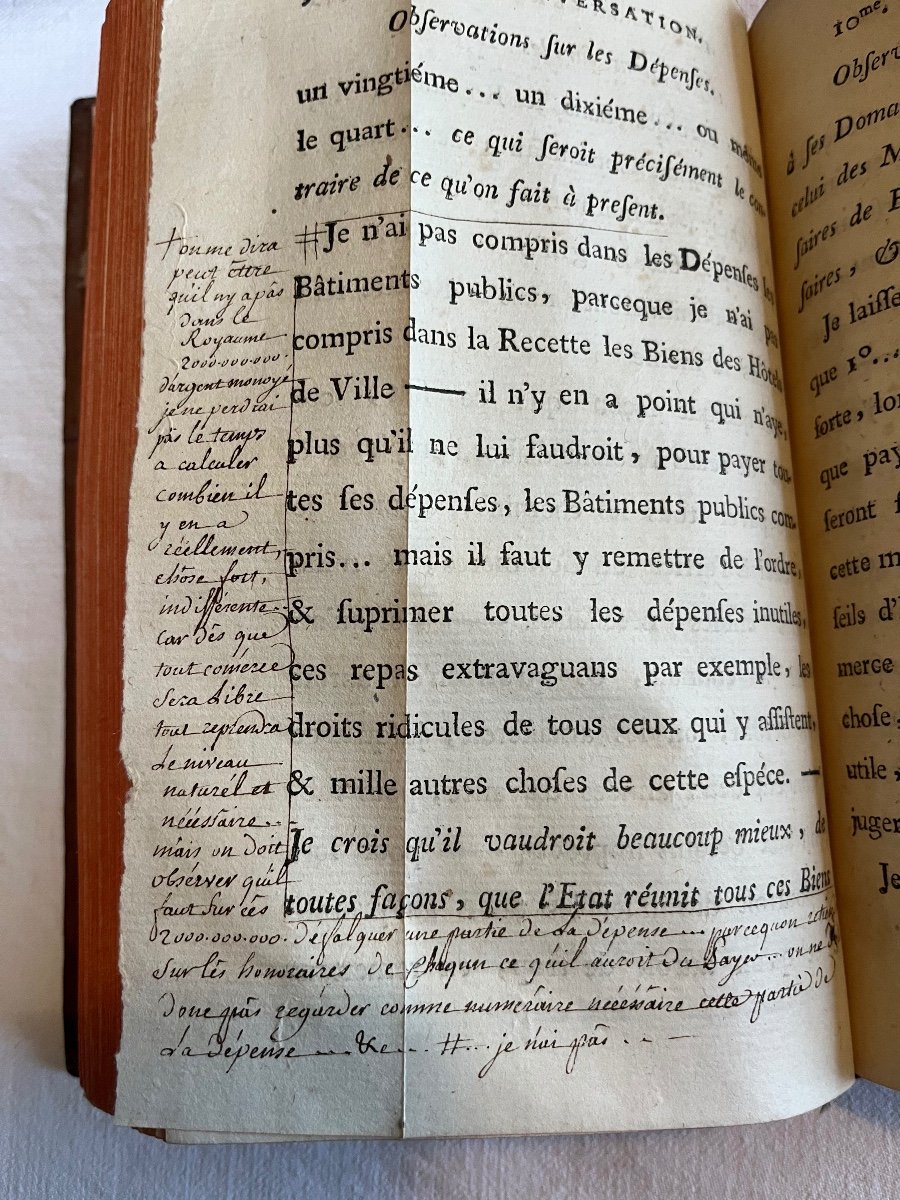 VERSATION.
Observations sur les Dépenses.
un vingtiéme... un dixiéme... ou même
le quart... ce qui seroit précisément le con-
traire de ce qu'on fait à present.
#Je n'ai pas compris dans les Dépenses les
Bâtiments publics, parceque je n'ai pas
compris dans la Recette les Biens des Hôtels
de Ville — il n'y en a point qui n'aye,
plus qu'il ne lui faudroit, pour payer tou-
tes ses dépenses, les Bâtiments publics com-
pris... mais il faut y remettre de l'ordre,
& suprimer toutes les dépenses inutiles,
ces repas extravaguans par exemple, les
droits ridicules de tous ceux qui y assistent,
& mille autres choses de cette espéce. —
Je crois qu'il vaudroit beaucoup mieux, de
toutes façons, que l'Etat réunit tous ces Biens
† on me dira
peut être
qu'il ny a pâs
dans le
Royaume
2000.000.000.
d'argent monoyé
je ne perdrai
pâs le temps
a calculer
combien il
y en a
réellement,
chôse fort,
indifférente..
car dès que
tout comérce
sera Libre
tout reprendra
Le niveau
naturél et
nécéssaire..
mais on doit
obsérver qu'il
faut sur cés
2000.000.000. défalquer une partie de La dépense ... parcequ'on
sur lés honoraires de chaqun ce qu'il auroit du Payer .. on ne
donc pas regarder comme numéraire nécéssaire cette partie de
La dépense ... &c ... # .. je n'ai pâs . . —
10me.
Observ
à ses Doma
celui des M
saires de
saires, &
Je laisse
que 1°...
forte, lor
que pay
seront
cette m
seils d'
merce
chose,
utile,
juger
Je